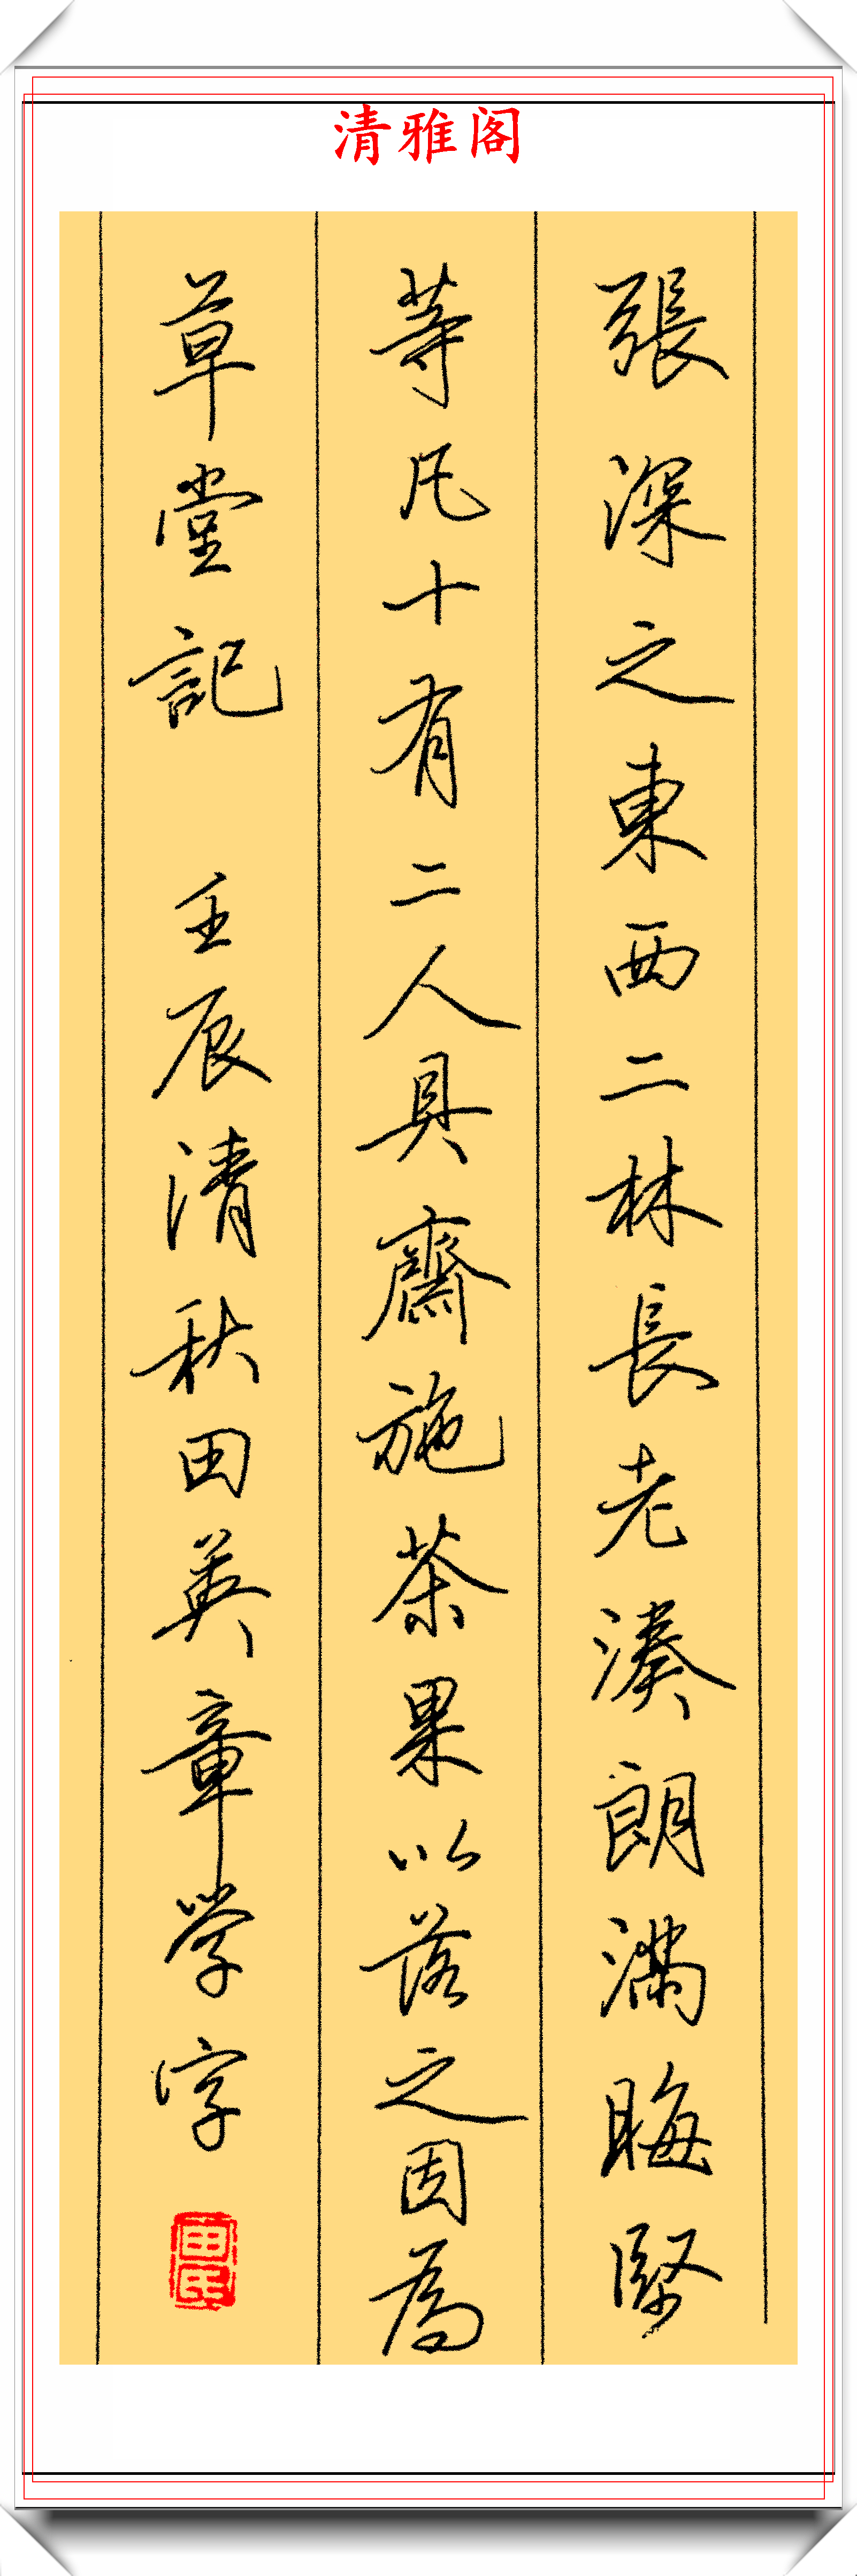 清雅阁
張深之東西二林長老湊朗滿晦堅
等凡十有二人具齋施茶果以落之因為
草堂記 壬辰清秋田英章學字